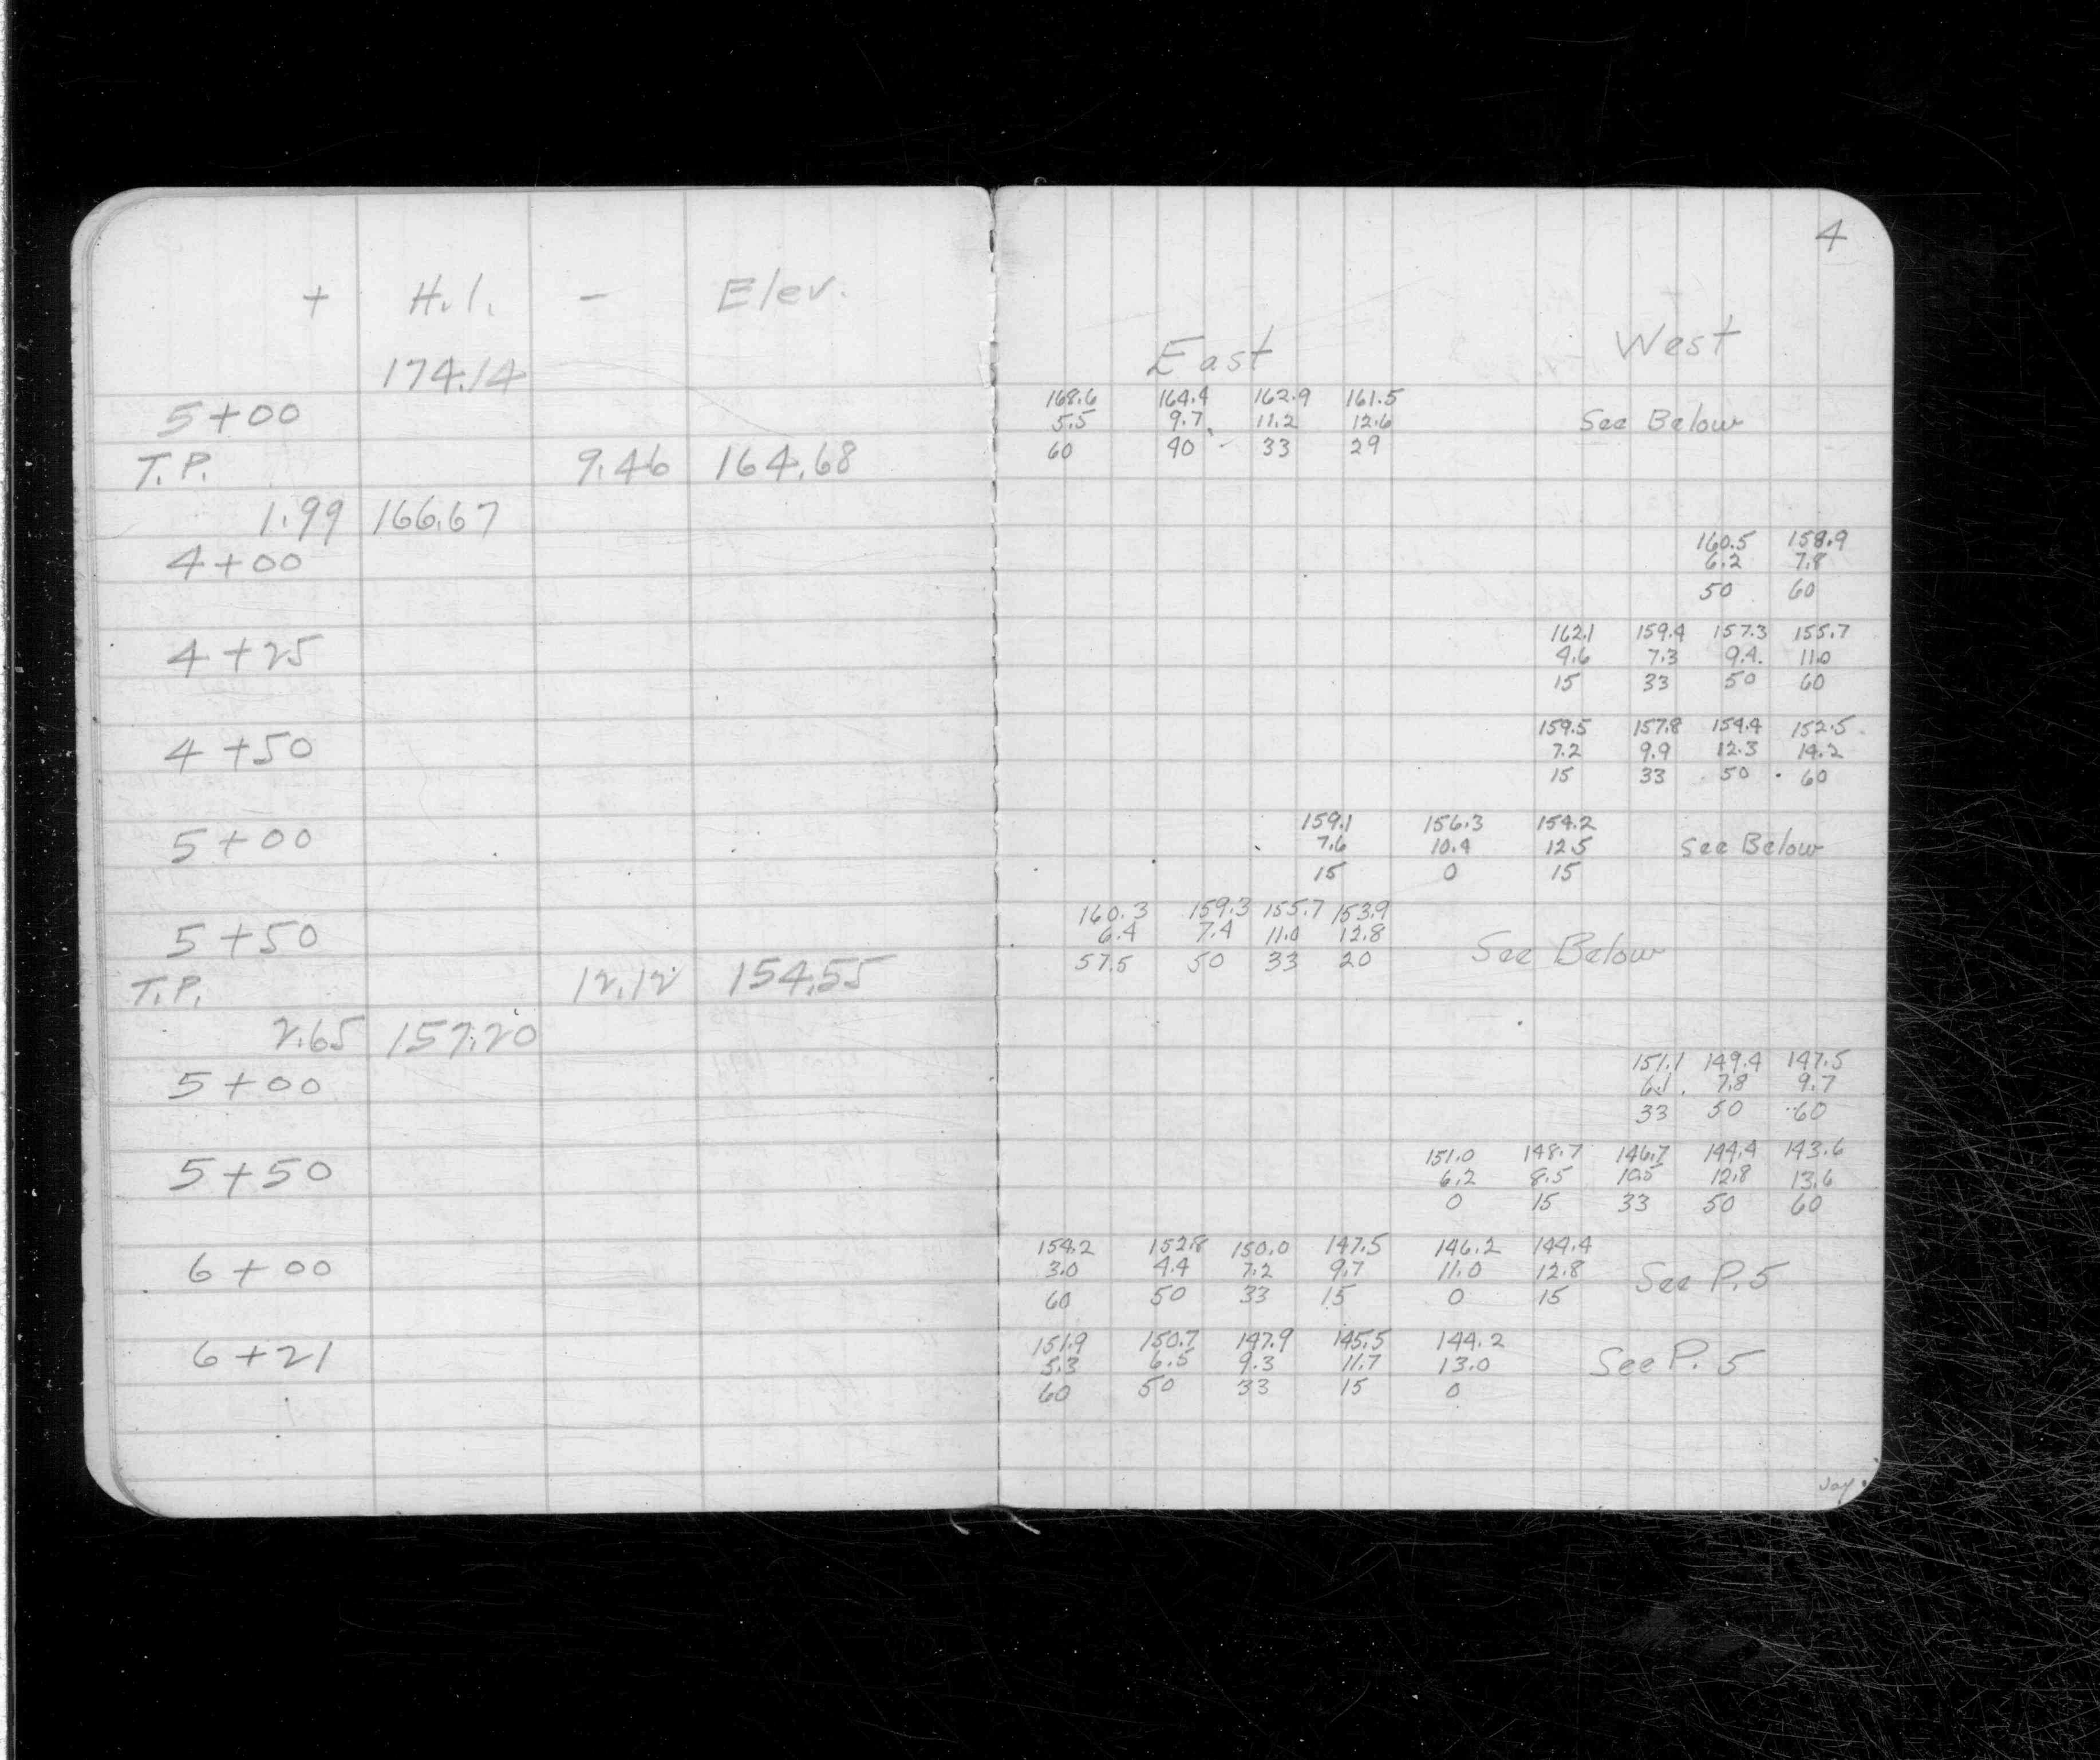 4
+ H.I. - Elev.
East West
174.14
168.6 164.4 162.9 161.5
5+00 5.5 9.7 11.2 12.6 See Below
60 40 33 29
T.P. 9.46 164.68
1.99 166.67
160.5 158.9
4+00 6.2 7.8
50 60
162.1 159.4 157.3 155.7
4+25 4.6 7.3 9.4 11.0
15 33 50 60
159.5 157.8 154.4 152.5
4+50 7.2 9.9 12.3 14.2
15 33 50 60
159.1 156.3 154.2
5+00 7.6 10.4 12.5 See Below
15 0 15
160.3 159.3 155.7 153.9
5+50 6.4 7.4 11.0 12.8 See Below
57.5 50 33 20
T.P. 12.12 154.55
2.65 157.20
151.1 149.4 147.5
5+00 6.1 7.8 9.7
33 50 60
151.0 148.7 146.7 144.4 143.6
5+50 6.2 8.5 10.5 12.8 13.6
0 15 33 50 60
154.2 152.8 150.0 147.5 146.2 144.4
6+00 3.0 4.4 7.2 9.7 11.0 12.8 See P. 5
60 50 33 15 0 15
151.9 150.7 147.9 145.5 144.2
6+21 5.3 6.5 9.3 11.7 13.0 See P. 5
60 50 33 15 0